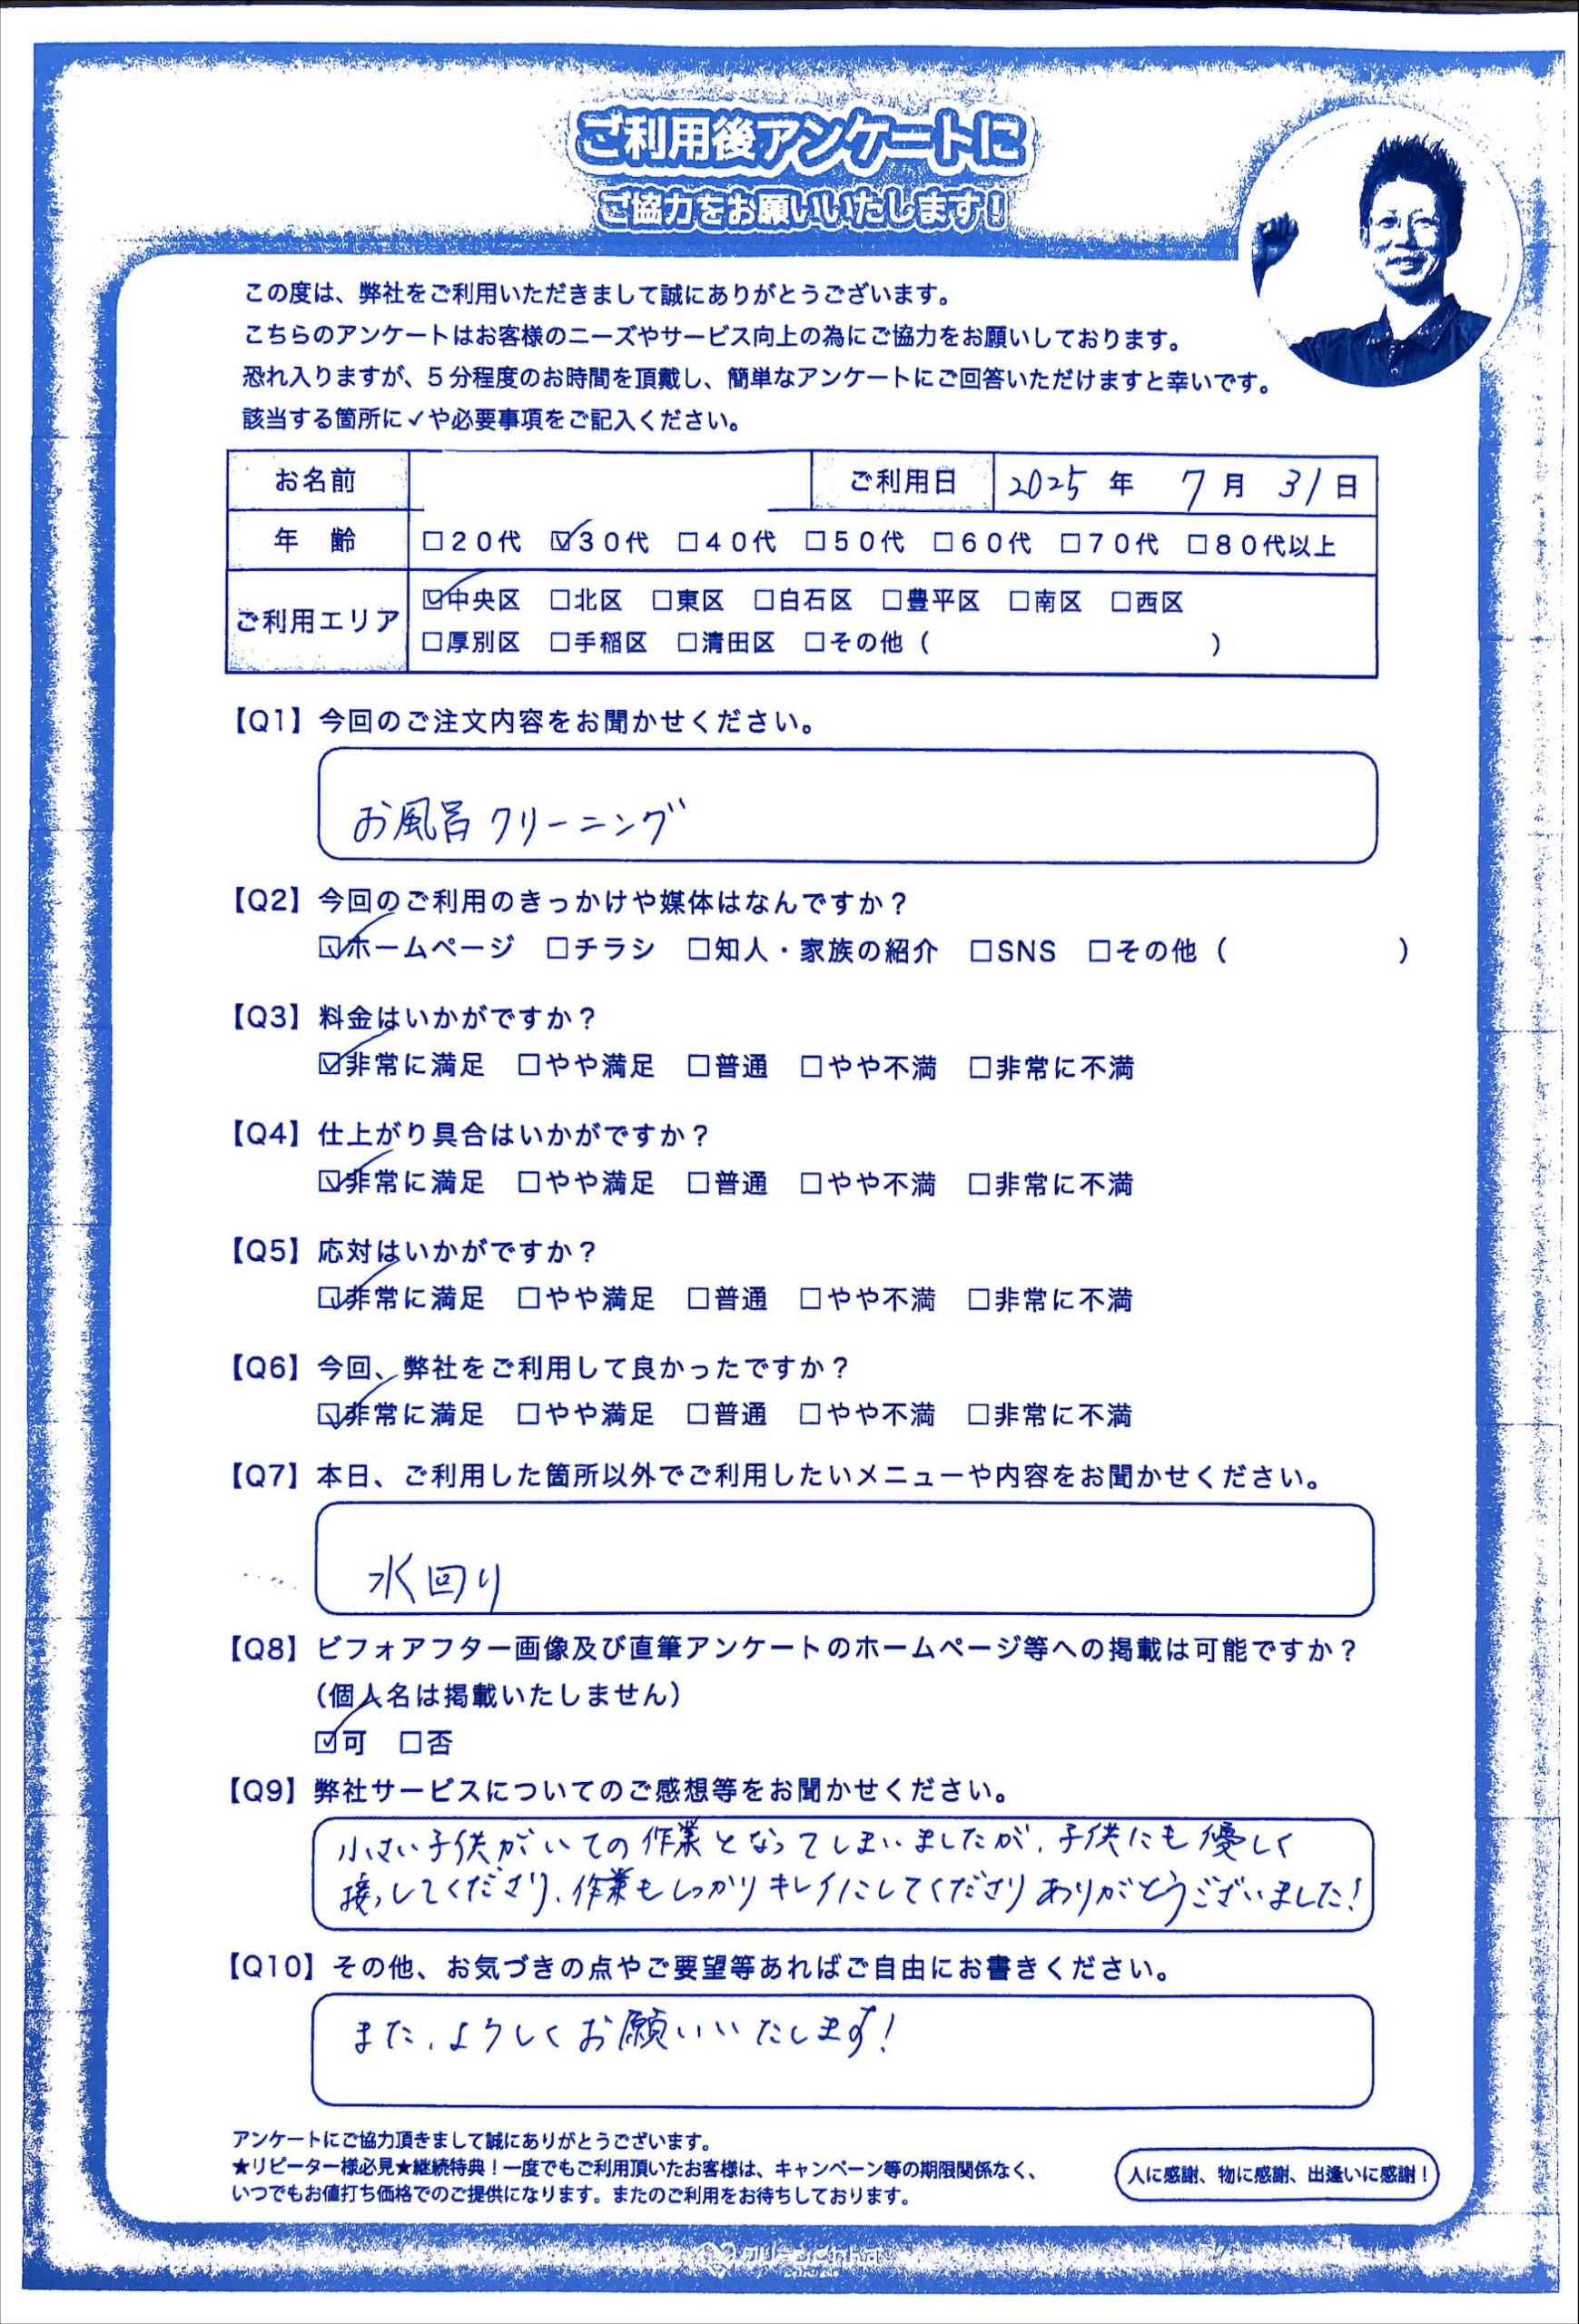 ご利用後アンケートに
ご協力をお願いいたします！
この度は、弊社をご利用いただきまして誠にありがとうございます。
こちらのアンケートはお客様のニーズやサービス向上の為にご協力をお願いしております。
恐れ入りますが、５分程度のお時間を頂戴し、簡単なアンケートにご回答いただけますと幸いです。
該当する箇所に✓や必要事項をご記入ください。
お名前 ご利用日 2025 年 7 月 31 日
年 齢 □２０代 ☑３０代 □４０代 □５０代 □６０代 □７０代 □８０代以上
ご利用エリア ☑中央区 □北区 □東区 □白石区 □豊平区 □南区 □西区
□厚別区 □手稲区 □清田区 □その他（ ）
【Q1】今回のご注文内容をお聞かせください。
お風呂クリーニング
【Q2】今回のご利用のきっかけや媒体はなんですか？
☑ホームページ □チラシ □知人・家族の紹介 □SNS □その他（ ）
【Q3】料金はいかがですか？
☑非常に満足 □やや満足 □普通 □やや不満 □非常に不満
【Q4】仕上がり具合はいかがですか？
☑非常に満足 □やや満足 □普通 □やや不満 □非常に不満
【Q5】応対はいかがですか？
☑非常に満足 □やや満足 □普通 □やや不満 □非常に不満
【Q6】今回、弊社をご利用して良かったですか？
☑非常に満足 □やや満足 □普通 □やや不満 □非常に不満
【Q7】本日、ご利用した箇所以外でご利用したいメニューや内容をお聞かせください。
水回り
【Q8】ビフォアフター画像及び直筆アンケートのホームページ等への掲載は可能ですか？
（個人名は掲載いたしません）
☑可 □否
【Q9】弊社サービスについてのご感想等をお聞かせください。
小さい子供がいての作業となってしまいましたが、子供にも優しく
接っしてくださり、作業もしっかりキレイにしてくださりありがとうございました！
【Q10】その他、お気づきの点やご要望等あればご自由にお書きください。
また、よろしくお願いいたします！
アンケートにご協力頂きまして誠にありがとうございます。
★リピーター様必見★継続特典！一度でもご利用頂いたお客様は、キャンペーン等の期限関係なく、
いつでもお値打ち価格でのご提供になります。またのご利用をお待ちしております。
人に感謝、物に感謝、出逢いに感謝！